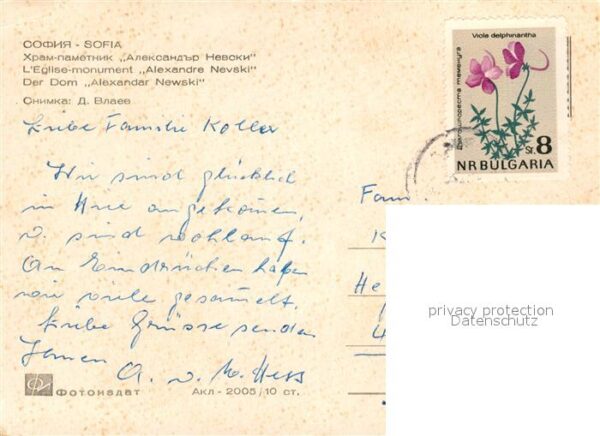 СОФИЯ - SOFIA
Храм-паметник „Александър Невски"
L'Eglise-monument „Alexandre Nevski"
Der Dom „Alexandar Newski"
Снимка: Д. Влаев
Viola delphinantha
Делфиноцветна теменуга
St. 8
NR BULGARIA
Liebe Familie Koller
Wir sind glücklich
in angekommen,
u. sind wohlauf.
An Eindrücken haben
wir viele gesammelt.
Liebe Grüsse senden
Ihnen
A. u. M. Hess
Fam
K
He
4
privacy protection
Datenschutz
Фотоиздат
Акл - 2005/10 ст.